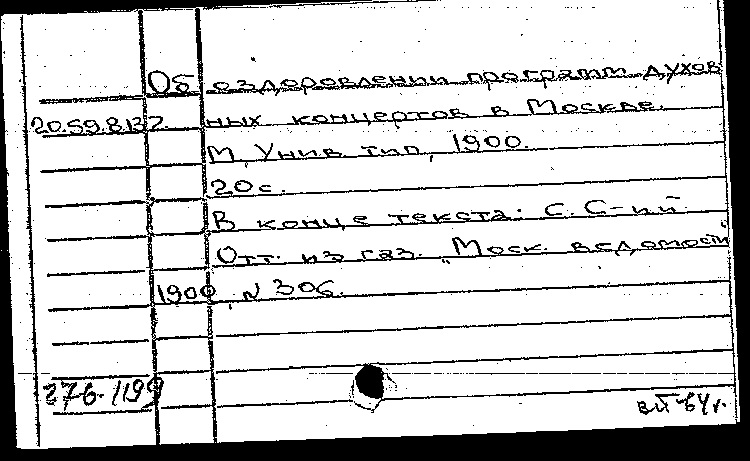 Об оздоровлении программ духов
20.59.8.137 ных концертов в Москве.
М, Унив тип, 1900.
20 с.
В конце текста: С. С-ий.
Отт. из газ. „Моск. ведомости"
1900, N 306.
276.1199